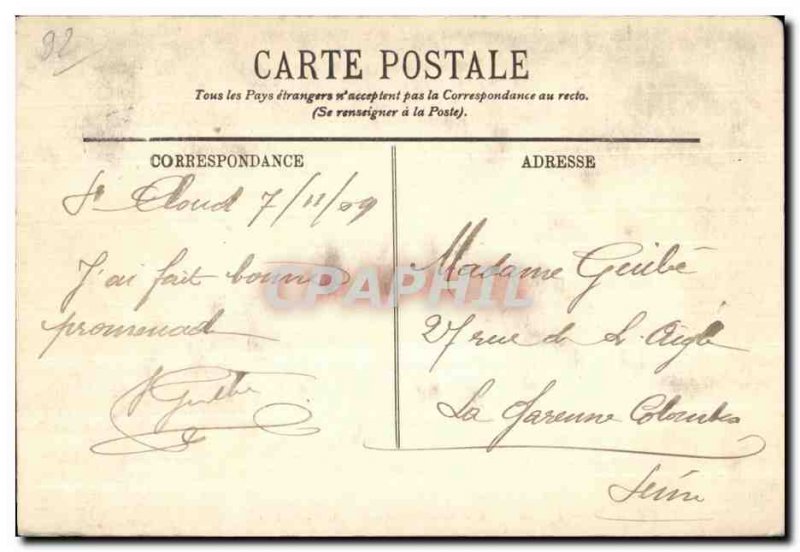 92
CARTE POSTALE
Tous les Pays étrangers n'acceptent pas la Correspondance au recto.
(Se renseigner à la Poste).
CORRESPONDANCE
St Cloud 7/11/09
J'ai fait bonne
promenad
Guibé
ADRESSE
Madame Guibé
27 rue de L. Aigle
La Garenne Colombes
Seine
CPAPHIL